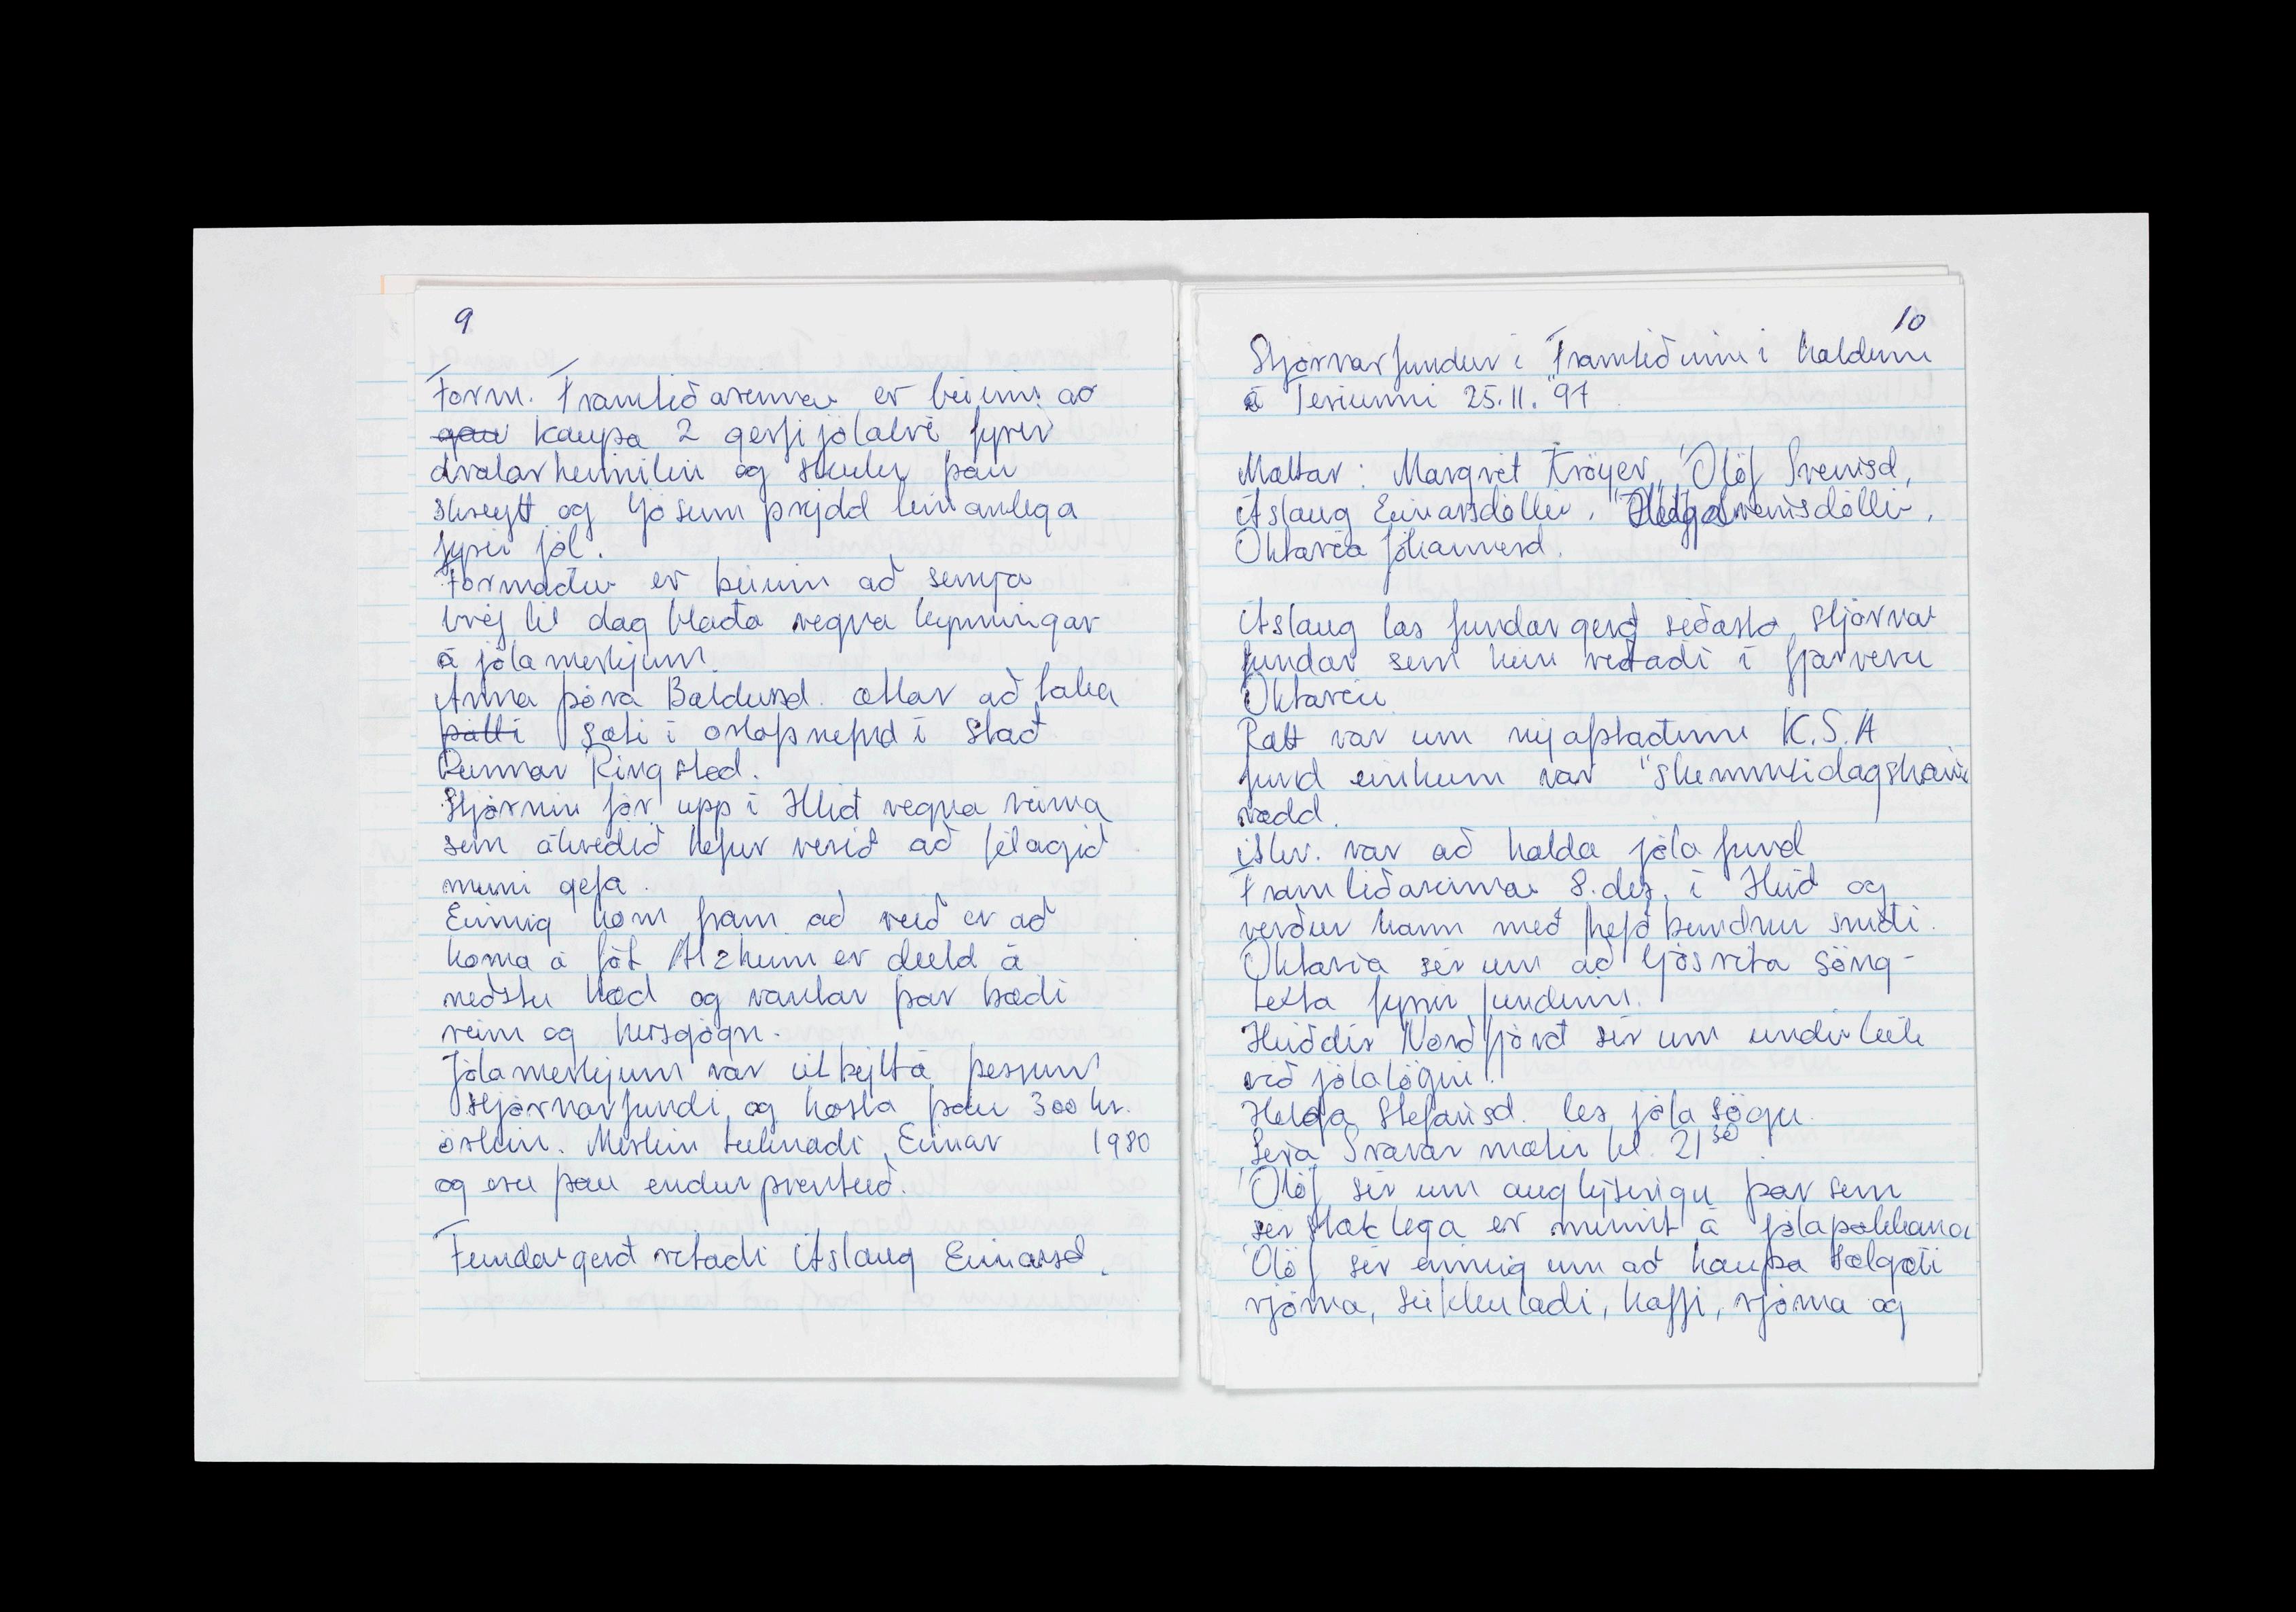 9
Form. Framtíðarinnar er beðinn að
gau kaupa 2 gerfijólatré fyrir
dvalarheimilin og skulu þau
skreytt og ljósum prýdd tímanlega
fyrir jól.
Formaður er beðinn að semja
bréf til dag blaða vegna kynningar
á jólamerkjum.
Anna Þóra Baldursd. ætlar að taka
þátt í sæti í orlofsnefnd í stað
Gunnar Ringsted.
Stjórnin fór upp í Hlíð vegna rúma
sem ákveðið hefur verið að félagið
muni gefa.
Einnig kom fram að verið er að
koma á fót Alzheimer deild á
neðstu hæð og vantar þar bæði
rúm og húsgögn.
Jólamerkjum var útbýtt á þessum
stjórnarfundi og kosta þau 300 kr.
örkin. Merkin teiknaði Einar 1980
og eru þau endurprentuð.
Fundargerð ritaði Áslaug Einarsd.
10
Stjórnarfundur í Framtíðinni haldinn
á Teriunni 25.11. "97
Mættar: Margrét Kröyer, Ólöf Sveinsd,
Áslaug Einarsdóttir,
Oktavía Jóhannesd.
Áslaug las fundargerð síðasta stjórnar
fundar sem hún ritaði í fjarveru
Oktavíu.
Rætt var um nýafstaðinn K.S.A
fund einkum var "skammdegishan
rædd.
Ákv. var að halda jólafund
Framtíðarinnar 8. des. í Hlíð og
verður hann með hefðbundnu sniði.
Oktavía sér um að ljósrita söng-
texta fyrir fundinn.
Heiðdís Norðfjörð sér um undirleik
við jólalögin.
Helga Stefánsd. les jólasögu.
Séra Svavar mætir kl. 21³⁰.
Ólöf sér um auglýsingu þar sem
sérstaklega er minnt á jólapakkana
Ólöf sér einnig um að kaupa sælgæti
rjóma, súkkulaði, kaffi, rjóma og